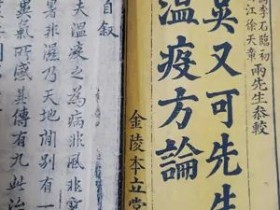 李石臨初
江徐天章
兩先生恭較
吳又可先生
溫疫方論
金陵本立堂
自叙
夫溫疫之為病非風非寒
暑非濕乃天地間別有一
異氣所感其傳有九此治